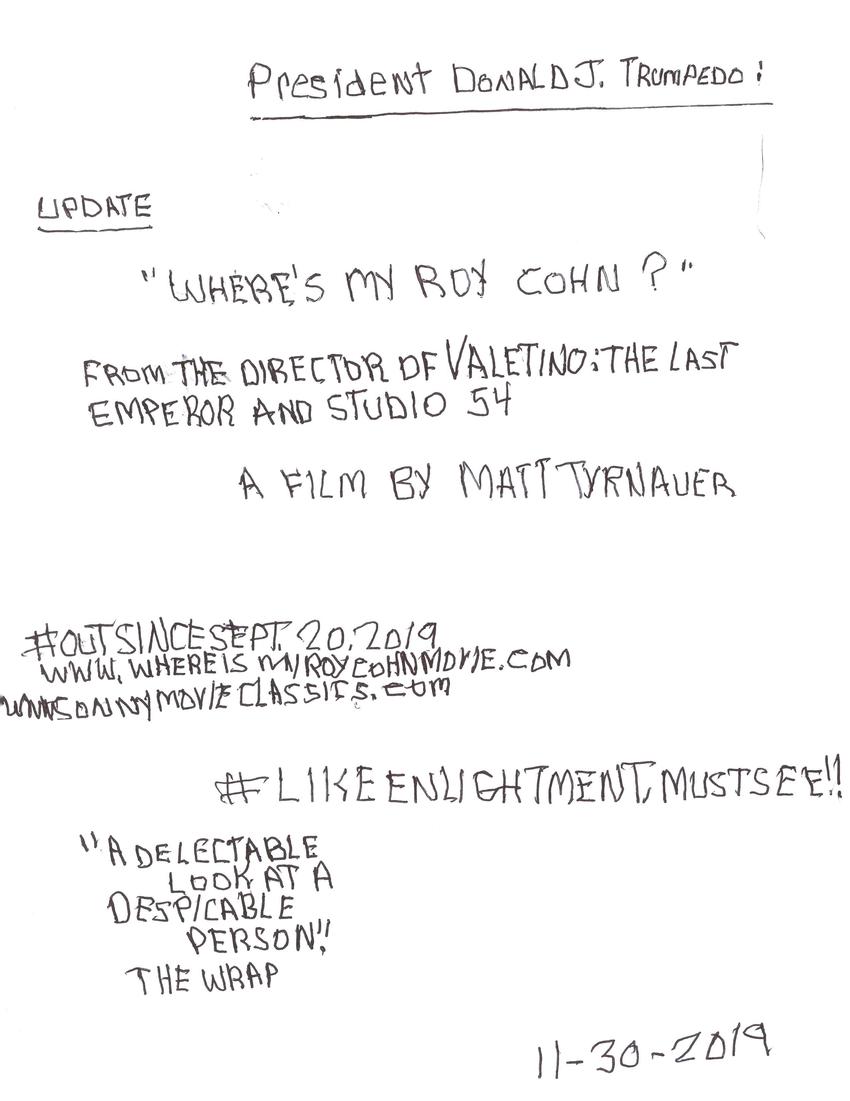 President DONALD J. TRUMPEDO:
UPDATE
"WHERE'S MY ROY COHN?"
FROM THE DIRECTOR OF VALETINO: THE LAST
EMPEROR AND STUDIO 54
A FILM BY MATT TYRNAUER
#OUTSINCESEPT. 20, 2019
WWW.WHEREISMYROYCOHNMOVIE.COM
WWWSONNYMOVIECLASSICS.COM
#LIKEENLIGHTMENT, MUSTSEE!!
"A DELECTABLE
LOOK AT A
DESPICABLE
PERSON!"
THE WRAP
11-30-2019